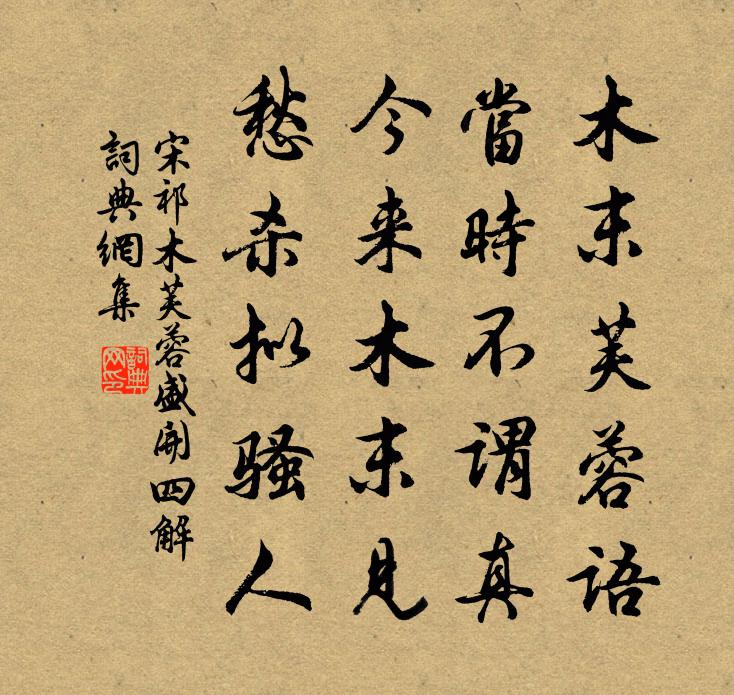 木末芙蓉語
當時不謂真
今来木末見
愁杀拟骚人
宋祁木芙蓉盛開四解
詞典網集
詞典网印